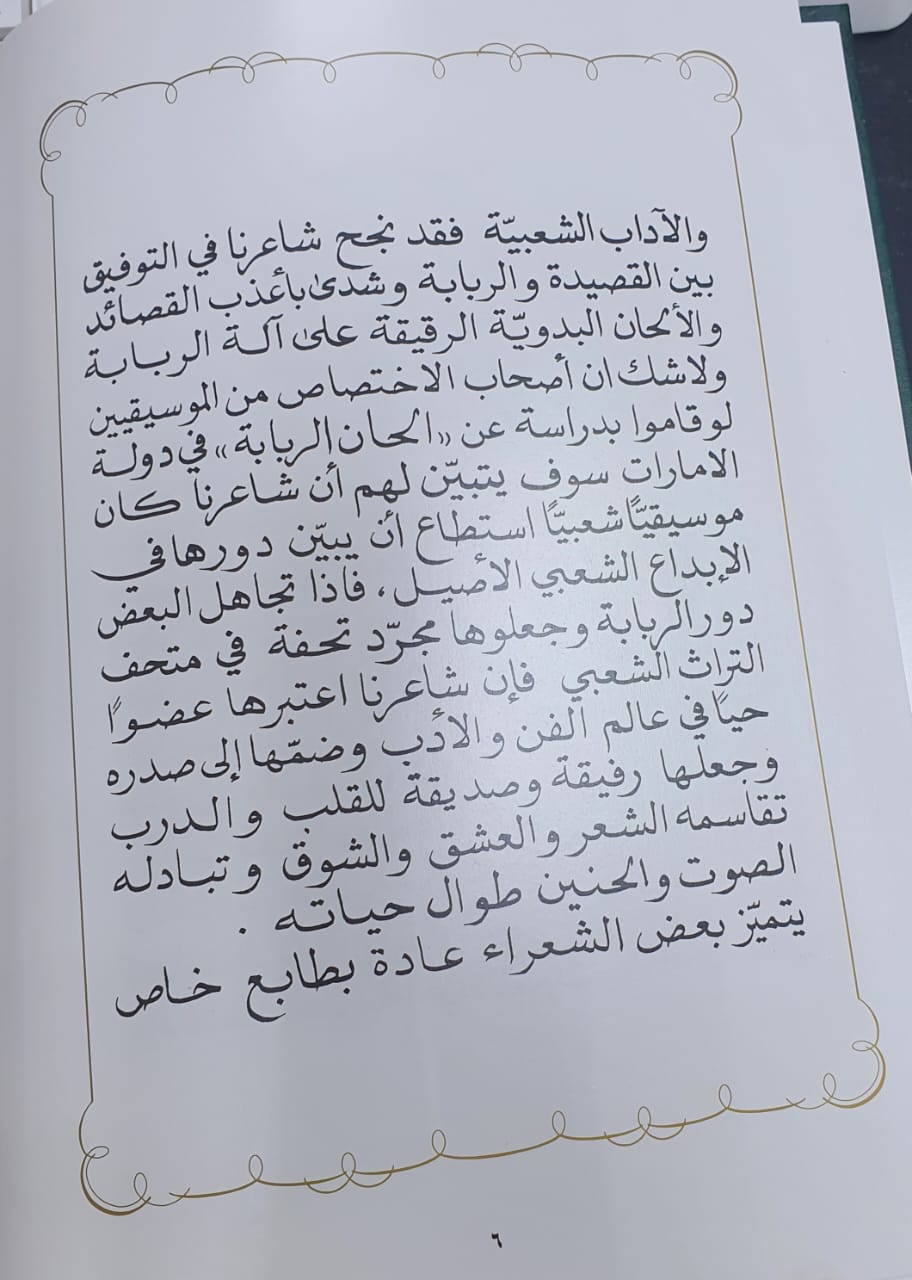 والآداب الشعبيّة فقد نجح شاعرنا في التوفيق
بين القصيدة والربابة وشدىٰ بأعذب القصائد
والألحان البدويّة الرقيقة علىٰ آلة الربابة
ولاشك ان أصحاب الاختصاص من الموسيقيين
لو قاموا بدراسة عن «الحان الربابة» في دولة
الامارات سوف يتبيّن لهم أن شاعرنا كان
موسيقيًّا شعبيًّا استطاع أن يبيّن دورها في
الإبداع الشعبي الأصيل، فاذا تجاهل البعض
دور الربابة وجعلوها مجرّد تحفة في متحف
التراث الشعبي فإن شاعرنا اعتبرها عضوًا
حيًا في عالم الفن والأدب وضمّها إلى صدره
وجعلها رفيقة وصديقة للقلب والدرب
تقاسمه الشعر والعشق والشوق وتبادله
الصوت والحنين طوال حياته .
يتميّز بعض الشعراء عادة بطابع خاص
٦